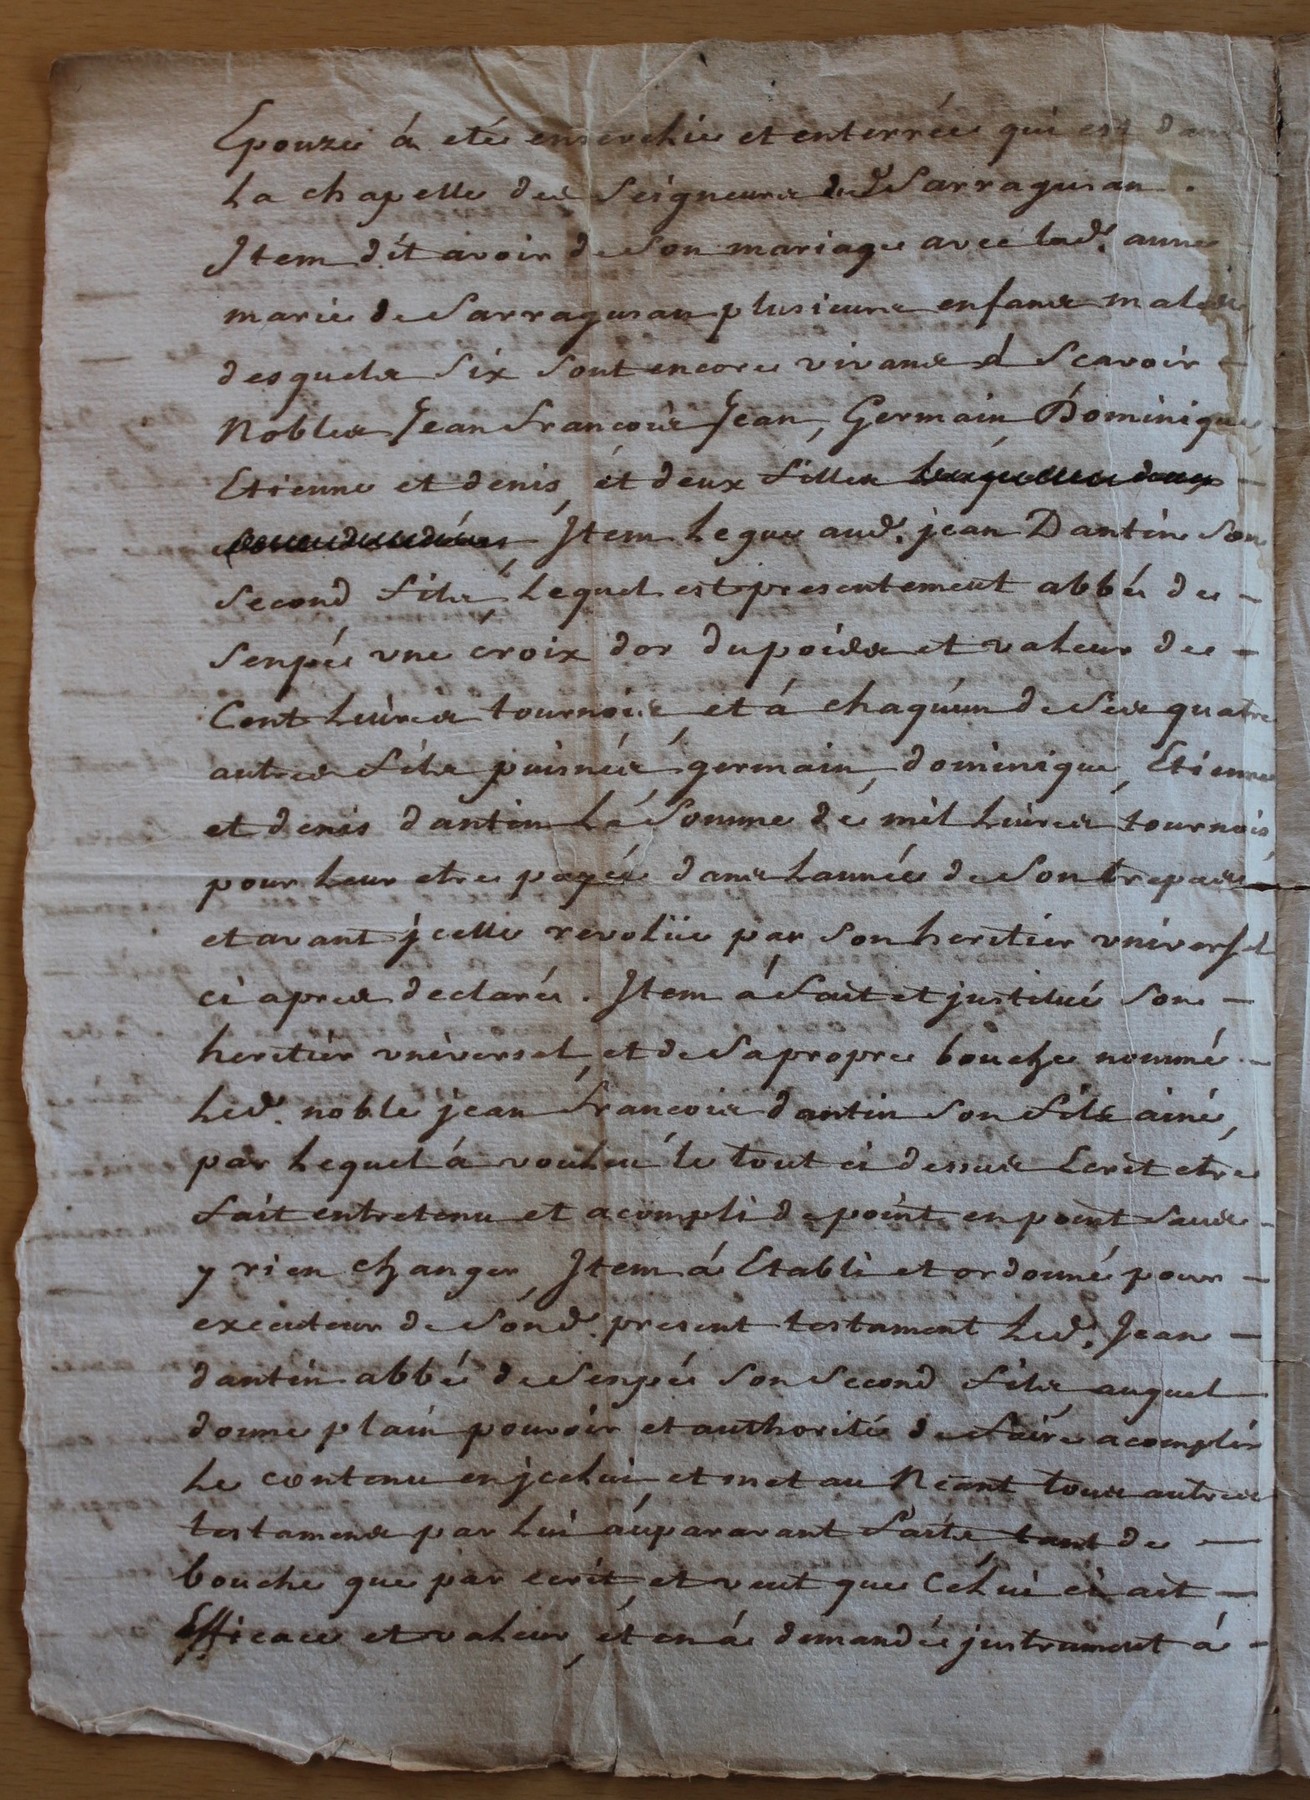 Epouze á eté enservelie et enterrée qui est dans
La chapelle des Seigneurs de Sarragusan.
Jtem dit avoir de Son mariage avec lad. anne
marie de Sarragusan plusieurs enfans males
desquels Six Sont encore vivans á Scavoir -
Nobles Jean francois Jean, Germain Dominique,
Etienne et denis, ét deux filles -
Jtem Legue aud. jean Dantin Son
Second fils, Lequel est presentement abbé de -
Senpé vne croix dor du poids et valeur de -
Cent Livres tournois, et á chaqúun de Ses quatre
autres fils puisnés, germain, dominique, Etienne
et denis dantin La Somme de mil Livres tournois,
pour Leur etre payée dans Lannée de Son trepas
et avant jcelle revolüe par Son heritier vniversel
ci apres declaré. Jtem á fait et justitué Son -
heritier vniversel, et de Sa propre bouche nommé -
Led. noble jean francois dantin Son fils ainé,
par Lequel á voulu le tout ci dessus Ecrit etre
fait entretenu et acompli de point en point Sans -
y rien changer, Jtem á Etabli et ordonné pour -
executeur de Sond. present testament Led. Jean -
dantin abbé de Senpé Son Second fils auquel
donne plain pouvoir et authorité de faire acomplir
Le contenu en jcelui, et met au Neant tous autres
testamens par Lui áuparavant faits, tant de -
bouche que par ecrit, et veut que Celui ci ait -
Efficace et valeur, ét en á demandé justrument á -